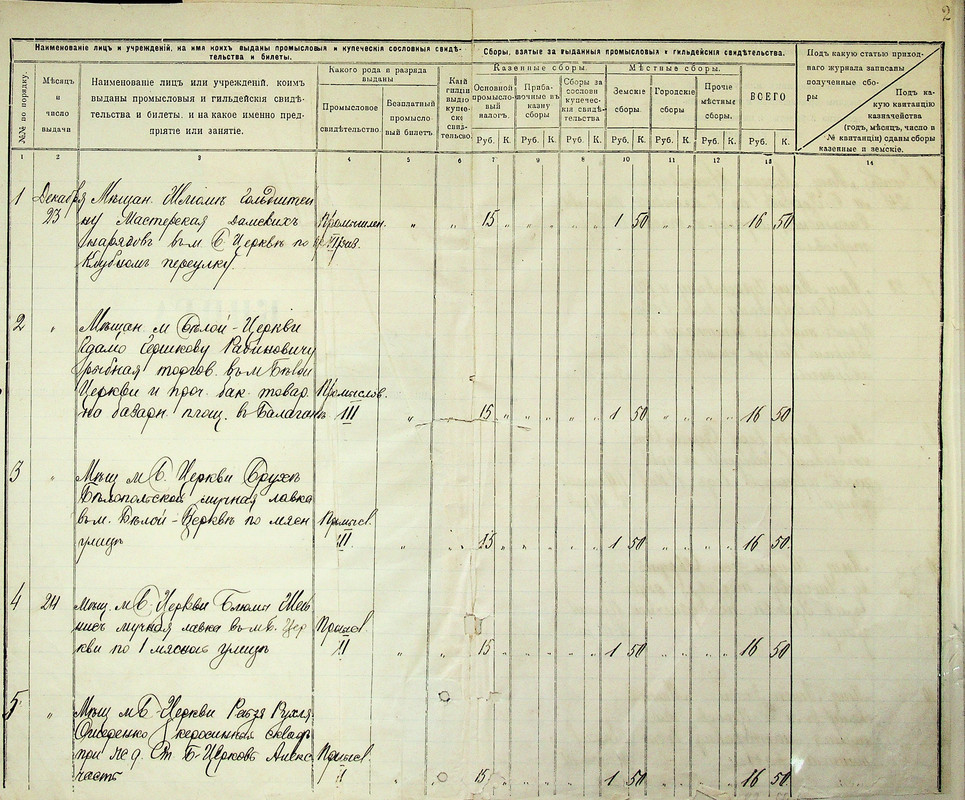 2
Наименованіе лицъ и учрежденій, на имя коихъ выданы промысловыя и купеческія сословныя свидѣ-
тельства и билеты.
Сборы, взятые за выданныя промысловыя и гильдейскія свидѣтельства.
№№ по порядку.
Мѣсяцъ
и
число
выдачи
Наименованіе лицъ или учрежденій, коимъ
выданы промысловыя и гильдейскія свидѣ-
тельства и билеты, и на какое именно пред-
пріятіе или занятіе.
Какого рода и разряда
выданы
Промысловое
свидѣтельство.
Безплатный
промысло-
вый билетъ.
Какой
гильдіи
выдано
купече-
ское
свидѣ-
тельство.
Казенные сборы.
Основной
промысло-
вый
налогъ.
Приба-
вочные въ
казну
сборы
Сборы за
сословн
купечес-
кія свидѣ-
тельства
Мѣстные сборы.
Земскіе
сборы.
Городскіе
сборы
Прочіе
мѣстные
сборы.
ВСЕГО
Руб. К. Руб. К. Руб. К. Руб. К. Руб. К. Руб. К. Руб. К.
Подъ какую статью приход-
наго журнала записаны
полученные сбо-
ры
Подъ ка-
кую квитанцію
казначейства
(годъ, мѣсяцъ, число и
№ квитанціи) сданы сборы
казенные и земскіе.
1 2 3 4 5 6 7 9 8 10 11 12 13 14
1 Декабря Мѣщан.
23 Мастерская дамскихъ Промышлен. „ „ 15 „ „ „ „ „ 1 50 „ „ „ „ 16 50
нарядовъ въ м Б Церквѣ по
Клубному переулку.
2 „ Мѣщан. м Бѣлой-Церкви
Рабиновичу
рыбная торгов. въ м Бѣлой
Церкви и проч. бак. товар. Промыслов.
на базарн. площ. въ Балаганѣ III „ „ 15 „ „ „ „ „ 1 50 „ „ „ „ 16 50
3 „ Мѣщ м Б. Церкви
Бѣлопольской мучная лавка
въ м. Бѣлой-Церквѣ по мясн Промысл.
улицѣ III „ „ 15 „ „ „ „ „ 1 50 „ „ „ „ 16 50.
4 24 Мѣщ. м Б. Церкви
мучная лавка въ м Б. Цер
кви по 1 мясной улицѣ „ „ 15 „ „ „ „ „ 1 50 „ „ „ „ 16 50
5 „ Мѣщ м Б-Церкви
керосинный складъ
при Ст Б-Церковь Промысл.
часть „ 15 „ „ „ „ „ 1 50 „ „ „ „ 16 50